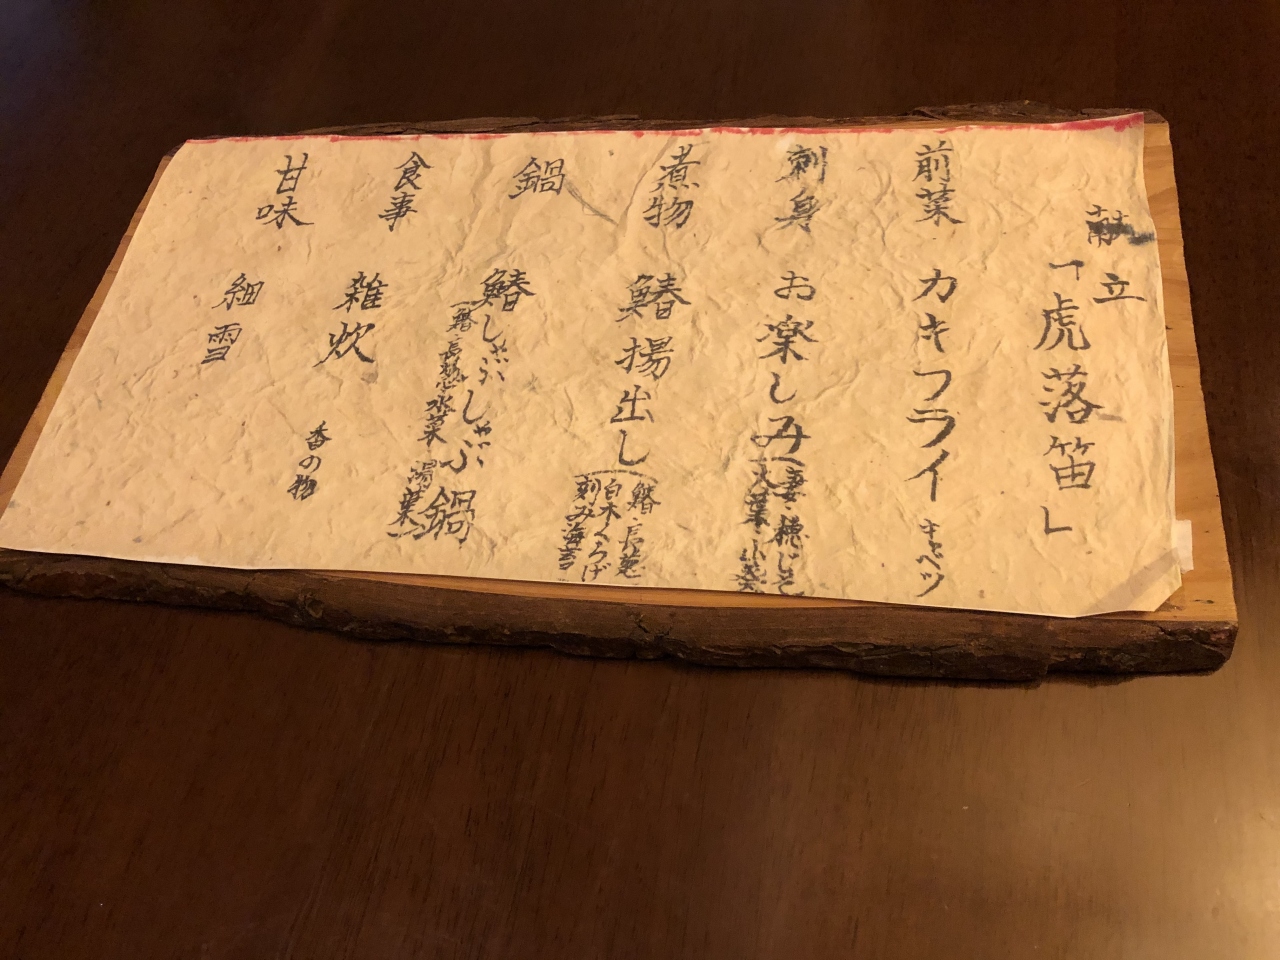 献立
「虎落笛」
前菜 カキフライ キャベツ
刺身 お楽しみ(妻・穂じそ
大葉・小菊
煮物 鰆揚出し(鰆・長葱
白木くらげ
刻み海苔
鍋 鰆しゃぶしゃぶ鍋
(鰆・長葱・水菜 湯葉)
食事 雑炊 香の物
甘味 細雪